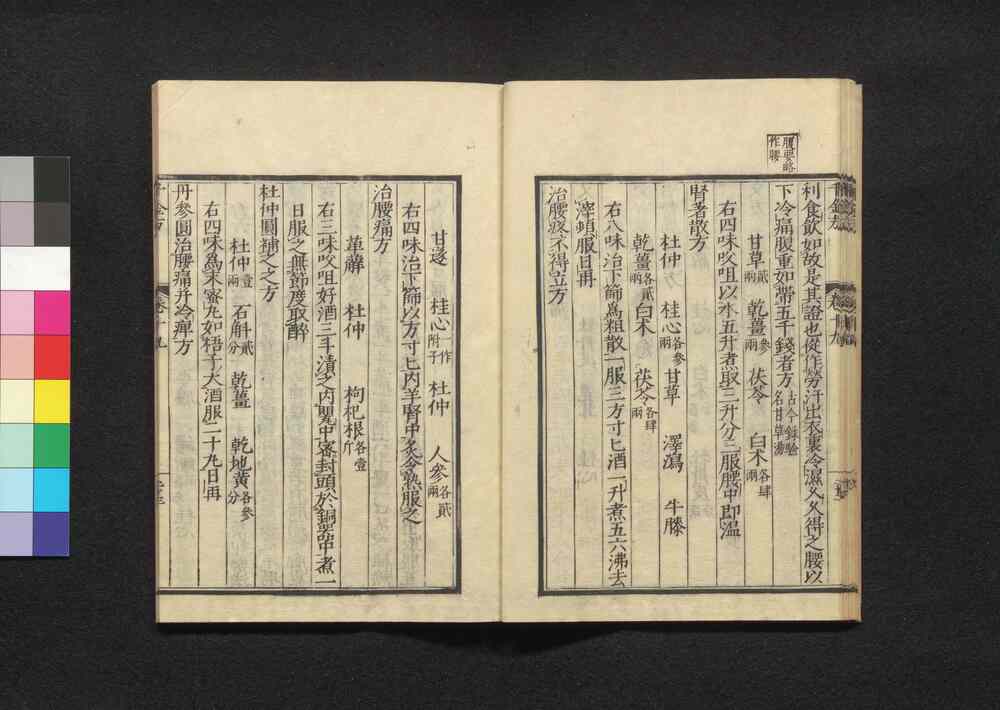 腹要略
作腰
利食飲如故是其證也從作勞汗出衣裏冷濕久久得之腰以
下冷痛腹重如帶五千錢者方古今錄驗名甘草湯
甘草貳兩 乾薑參兩 茯苓 白朮各肆兩
右四味㕮咀以水五升煮取三升分三服腰中即溫
腎著散方
杜仲 桂心各參兩 甘草 澤瀉 牛膝
乾薑各貳兩 白朮 茯苓各肆兩
右八味治下篩爲粗散一服三方寸匕酒一升煮五六沸去
滓頓服日再
治腰疼不得立方
甘遂 桂心一作附子 杜仲 人參各貳兩
右四味治下篩以方寸匕內羊腎中炙令熟服之
治腰痛方
萆薢 杜仲 枸杞根各壹斤
右三味㕮咀好酒三斗漬之內罌中密封頭於銅器中煮一
日服之無節度取醉
杜仲圓補之之方
杜仲壹兩 石斛貳分 乾薑 乾地黃各參分
右四味爲末蜜丸如梧子大酒服二十丸日再
丹參圓治腰痛并冷痹方